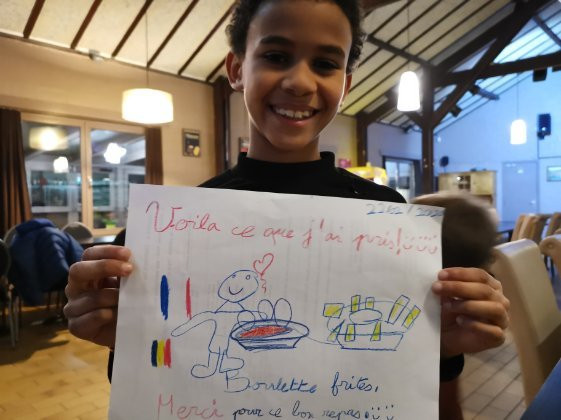 Voila ce que j'ai pris!
Boulette frites.
Merci pour ce bon repas